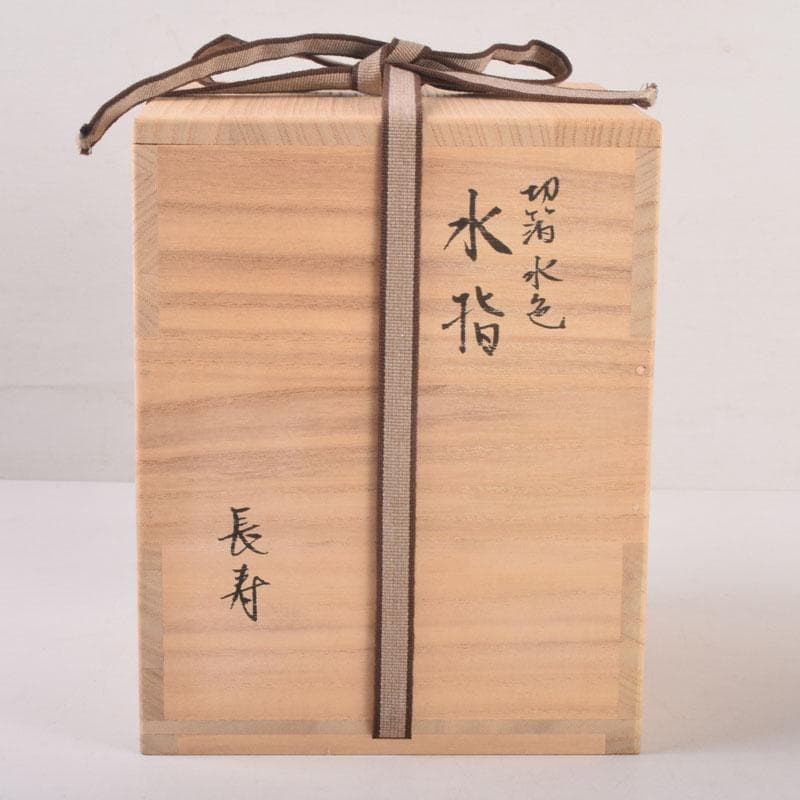 切箔水色
水指
長寿